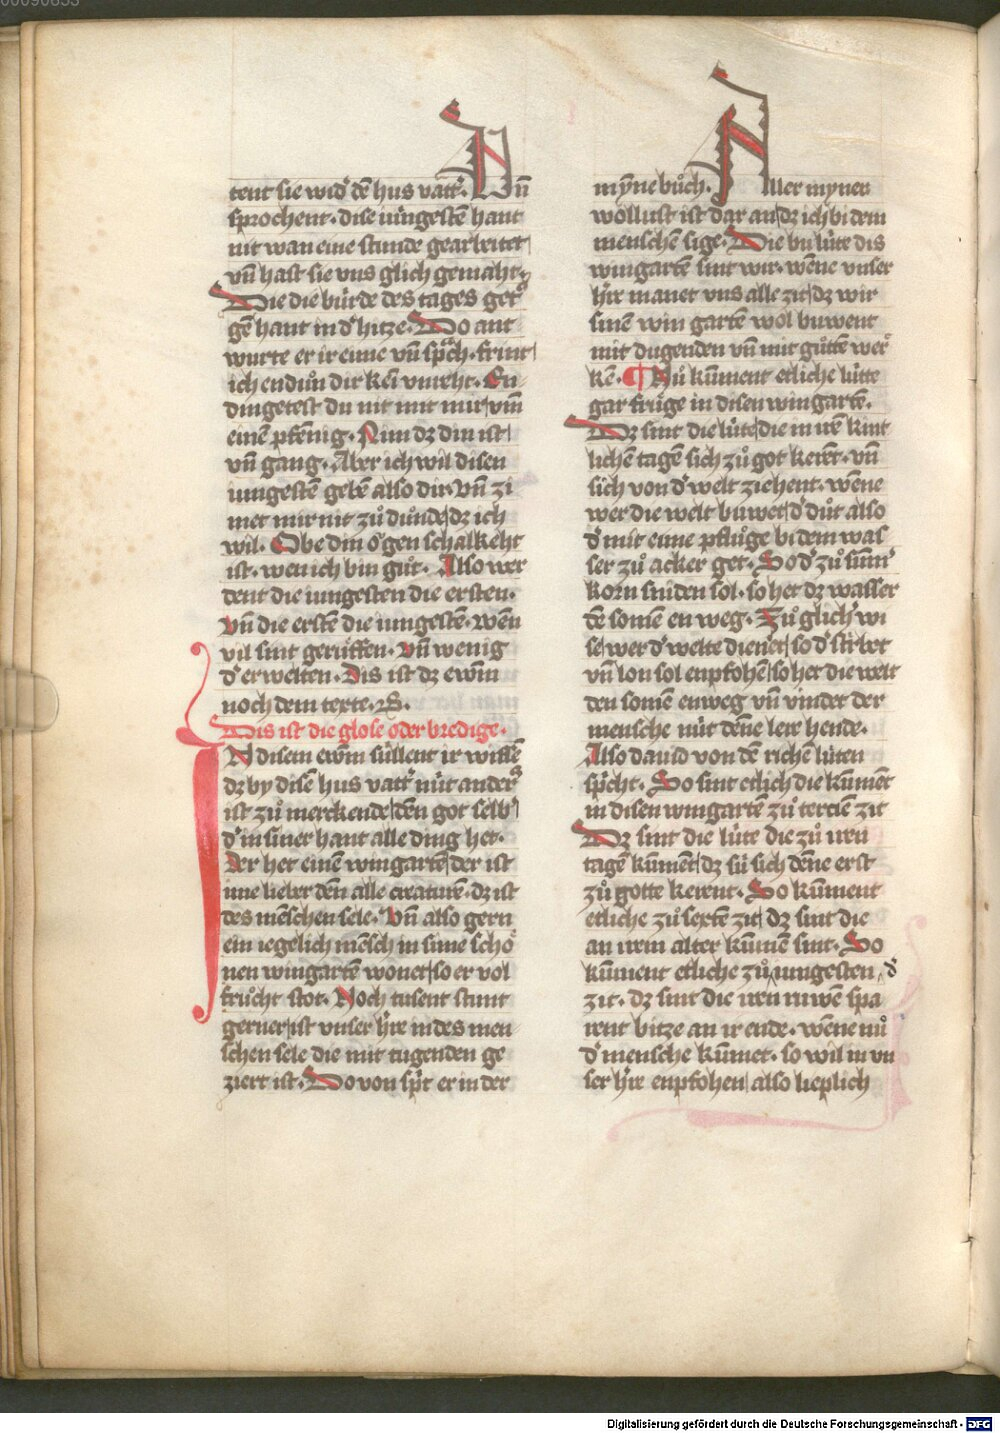 tent sie wid' dē hus vatt'. Vn̄
sprochent. dise iu̍ngestē hant
nit wan eine stunde gearbeitet
vn̄ hast sie vns glich gemaht.
Die die bu̍rde des tages get'
gē hant in d' hitze. Do ant
wurte er ir eime vn̄ sp̄ch. frint
ich endůn dir kei vnreht. En
dingetest du nit mit mir vm̄
einē pfēnig. Nim dz din ist
vn̄ gang. Aber ich wil disen
iungestē gebē also dir. Vn̄ zi
met mir nit zů důnde dz ich
wil. Obe din ögen schalkeht
ist. wen ich bin gůt. Also wer
dent die iungesten die ersten.
vn̄ die erstē die iungestē. wēn
vil sint gerüffen. vn̄ wenig
d' erwelten. Dis ist dz ewm̄
noch dem texte. S.
Dis ist die glose oder bredige.
IN disem ewm̄ su̍llent ir wissē
dz by disē hus vatt' nu̍t anders
ist zů merckende den got selb'
d' in siner hant alle ding het.
Der het einen wingartē der ist
ime lieber dēn alle creaturē. dz ist
des mēschen sele. Vn̄ also gern
ein iegelich mēsch in sime schö
nen wingartē wonet so er vol
fru̍cht stot. Noch tusent stunt
gerner ist vnser h're in des men
schen sele die mit tugenden ge
ziert ist. Do von sp't er in der
mȳne bůch. Aller myner
wollust ist dar an dz ich bi dem
menschē sige. Die bulu̍te dis
wingartē sint wir. wēne vnser
h're manet vns alle zit dz wir
sinē win gartē wol buwent
mit dugenden vn̄ mit gůtē wer
kē. ¶ Nů ku̍ment etliche lu̍te
gar fru̍ge in disen wingartē.
Dz sint die lu̍te die in irē kint
lichē tagē sich zů got kerēt. vn̄
sich von d' welt ziehent. wēne
wer die welt buwet d' důt also
d' mit eime pflůge bi dem was
ser zů acker get. So d' zů sim̄
korn sniden sol. so het dz wasser
dē somē en weg. Zů glich' wi
se wer d' welte dienet so d' stirbt
vn̄ lon sol enpfohē so het die welt
den somē enweg vn̄ vindet der
mensche nu̍t dēne lere hende.
Also dauid von dē richen lu̍ten
sp̄cht. So sint etlich die ku̍mēt
in disen wingartē zů tercie zit
Dz sint die lu̍te die zů iren
tagē ku̍mēt dz su̍ sich dēne erst
zů gotte kerent. So ku̍ment
etliche zů sexte zit dz sint die
an irem alter ku̍mē sint. So
ku̍ment etliche zů iungesten d'
zit. dz sint die iren ruwē spa
rent bitze an ir ende. wēne nů
d' mensche ku̍met. so wil in vn
ser h're enpfohen also lieplich
Digitalisierung gefördert durch die Deutsche Forschungsgemeinschaft - DFG